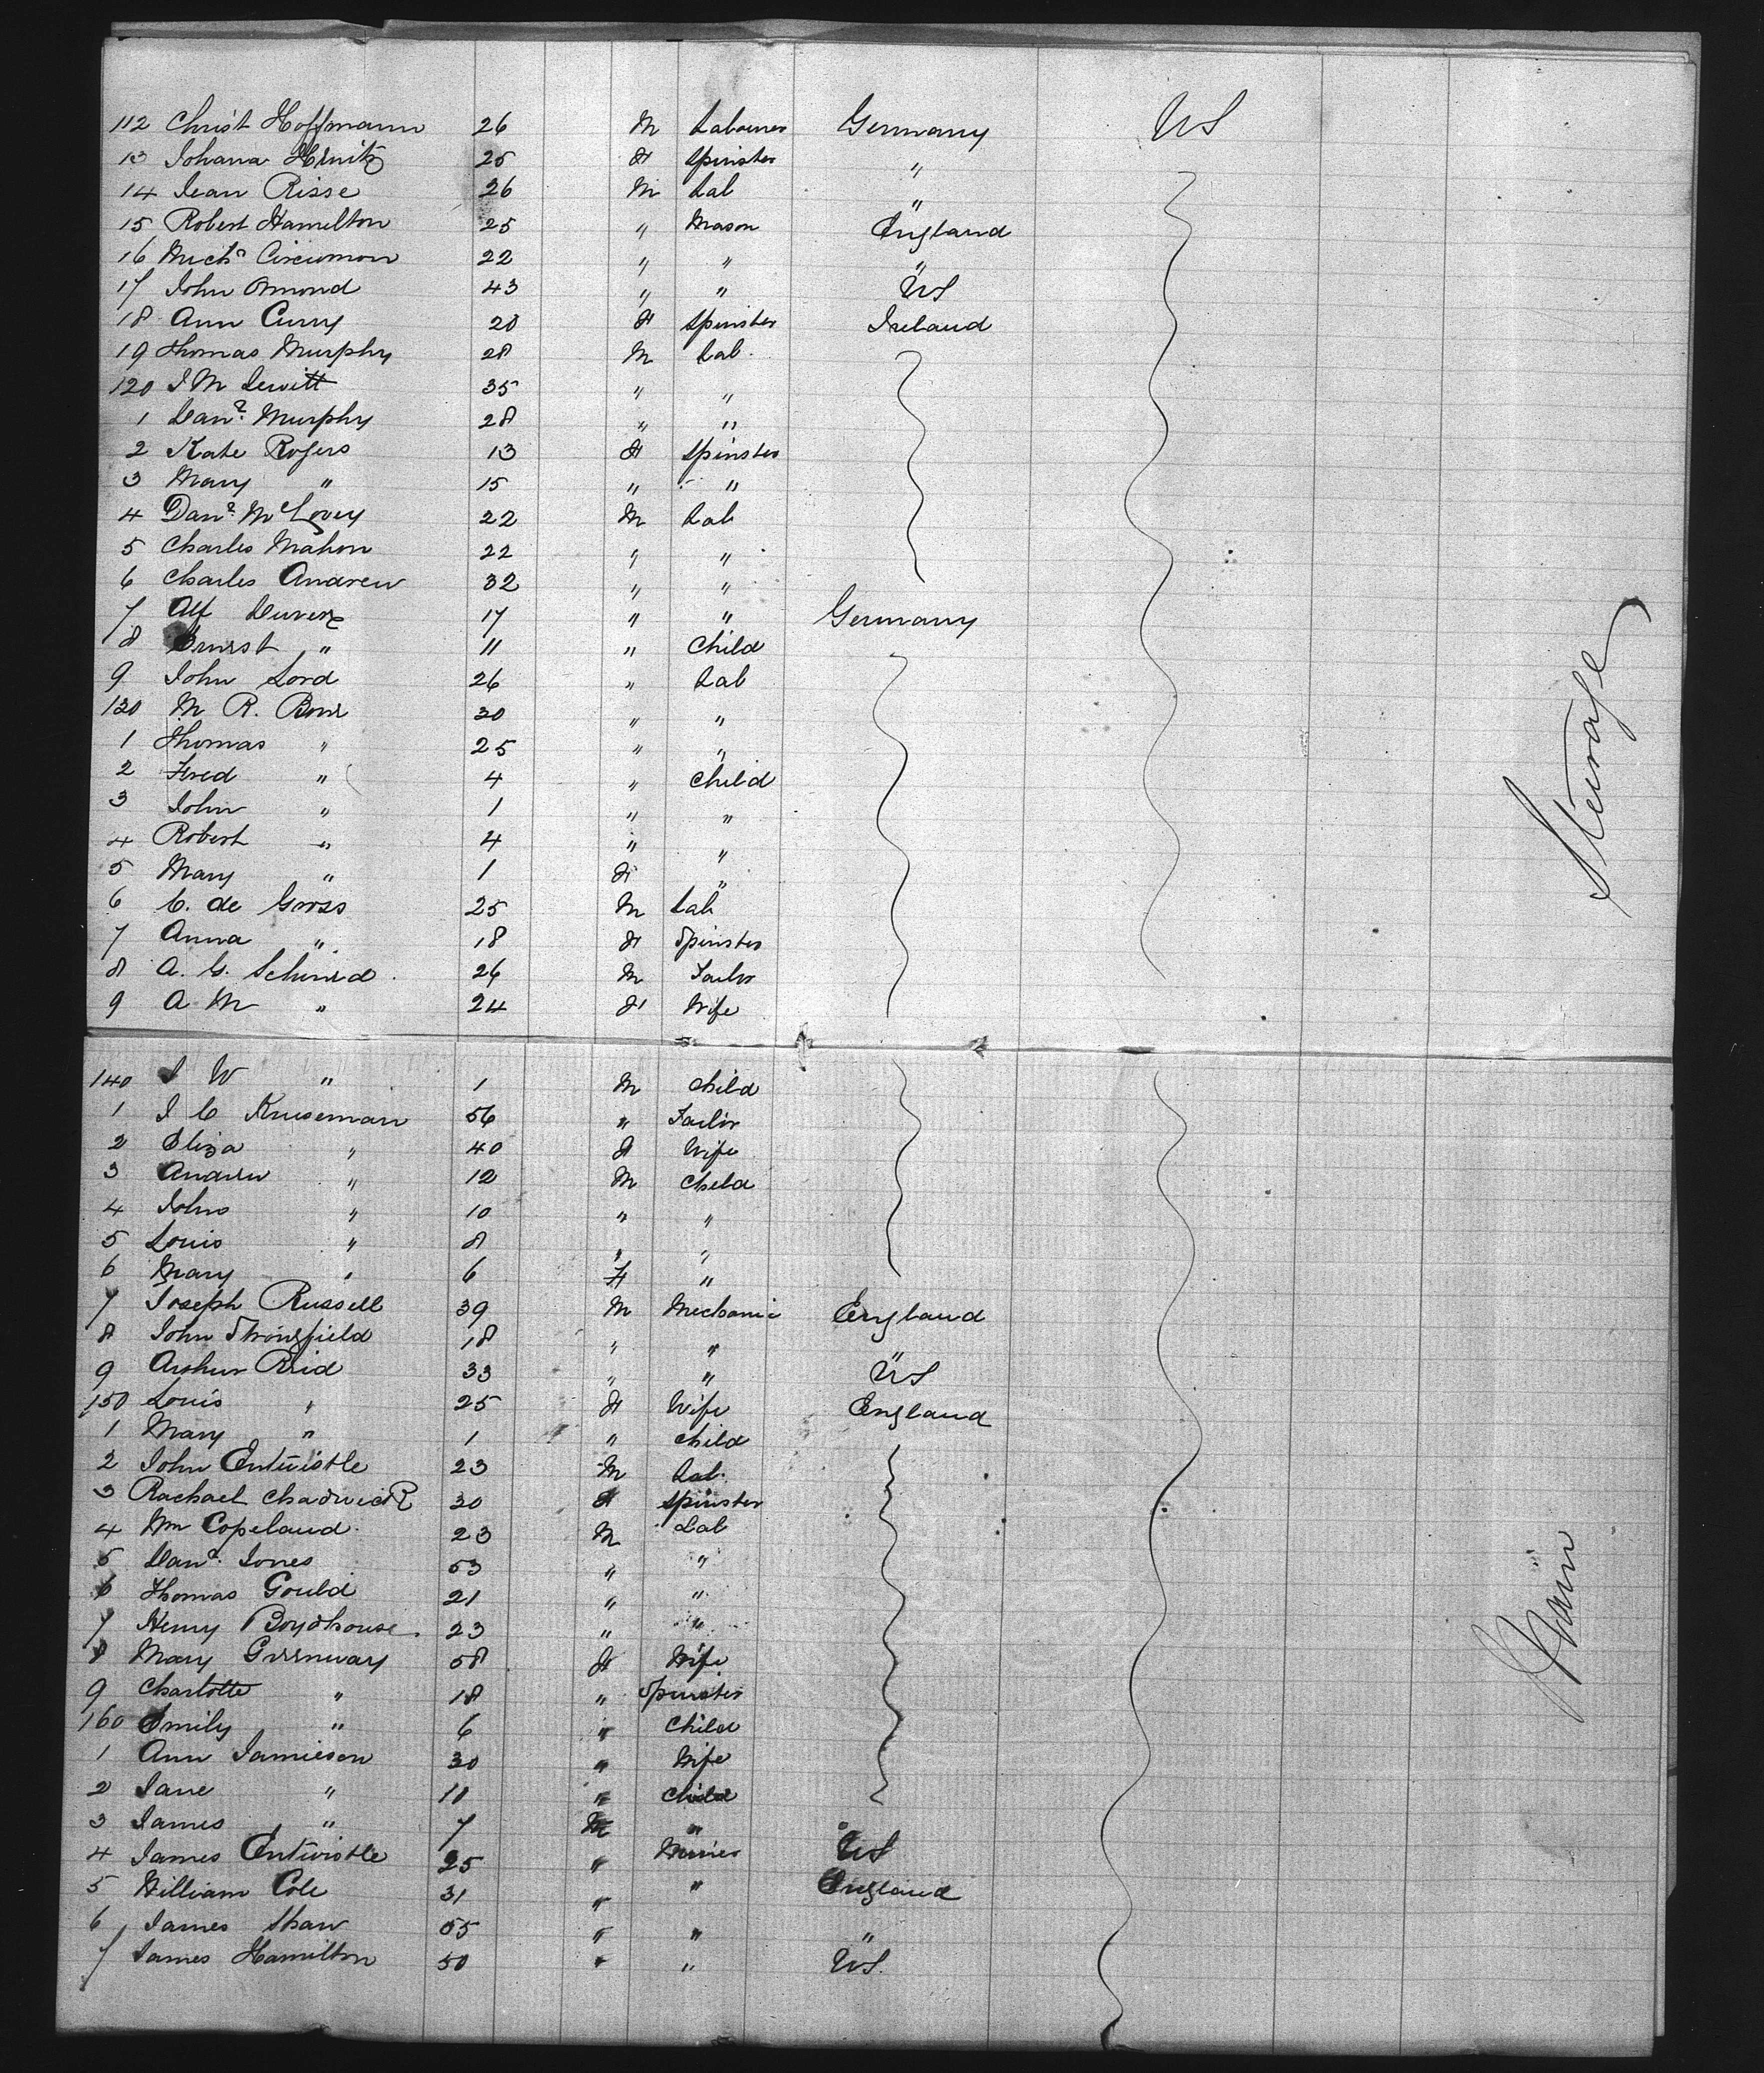 112 Christ Hoffmann 26 M Labourer Germany US
13 Johana 25 F Spinster "
14 Jean Risse 26 M Lab "
15 Robert Hamilton 25 " Mason England
16 Mich. 22 " " "
17 John Ormond 43 " " US
18 Ann Curry 20 F Spinster Ireland
19 Thomas Murphy 28 M Lab.
120 J M 35 " "
1 Danl. Murphy 28 " "
2 Kate Rogers 13 F Spinster
3 Mary " 15 " "
4 Danl. 22 M Lab
5 Charles Mahon 22 " "
6 Charles Andrew 32 " "
7 Alf 17 " " Germany
8 Ernest " 11 " Child
9 John Lord 26 " Lab
130 M R. 30 " "
1 Thomas " 25 " "
2 Fred " 4 " Child
3 John " 1 " "
4 Robert " 4 " "
5 Mary " 1 F "
6 C. de Gross 25 M Lab
7 Anna " 18 F Spinster
8 A. G. Schmid 26 M Tailor
9 A M " 24 F Wife
140 J W " 1 M Child
1 J C Kruseman 56 " Tailor
2 Eliza " 40 F Wife
3 Andrew " 12 M Child
4 John " 10 " "
5 Louis " 8 " "
6 Mary " 6 F "
7 Joseph Russell 39 M Mechanic England
8 John Strongfield 18 " " "
9 Arthur Reid 33 " " US
150 Louis " 25 F Wife England
1 Mary " 1 " Child
2 John Entwistle 23 M Lab.
3 Rachael Chadwick 30 F Spinster
4 Wm Copeland 23 M Lab
5 Danl. Jones 53 " "
6 Thomas Gould 21 " "
7 Henry Boydhouse 23 " "
8 Mary Greenway 58 F Wife
9 Charlotte " 18 " Spinster
160 Emily " 6 " Child
1 Ann Jamieson 30 " Wife
2 Jane " 11 " Child
3 James " 7 M "
4 James Entwistle 25 " Miner US
5 William Cole 31 " " England
6 James Shaw 55 " " "
7 James Hamilton 50 " " US.
Steerage